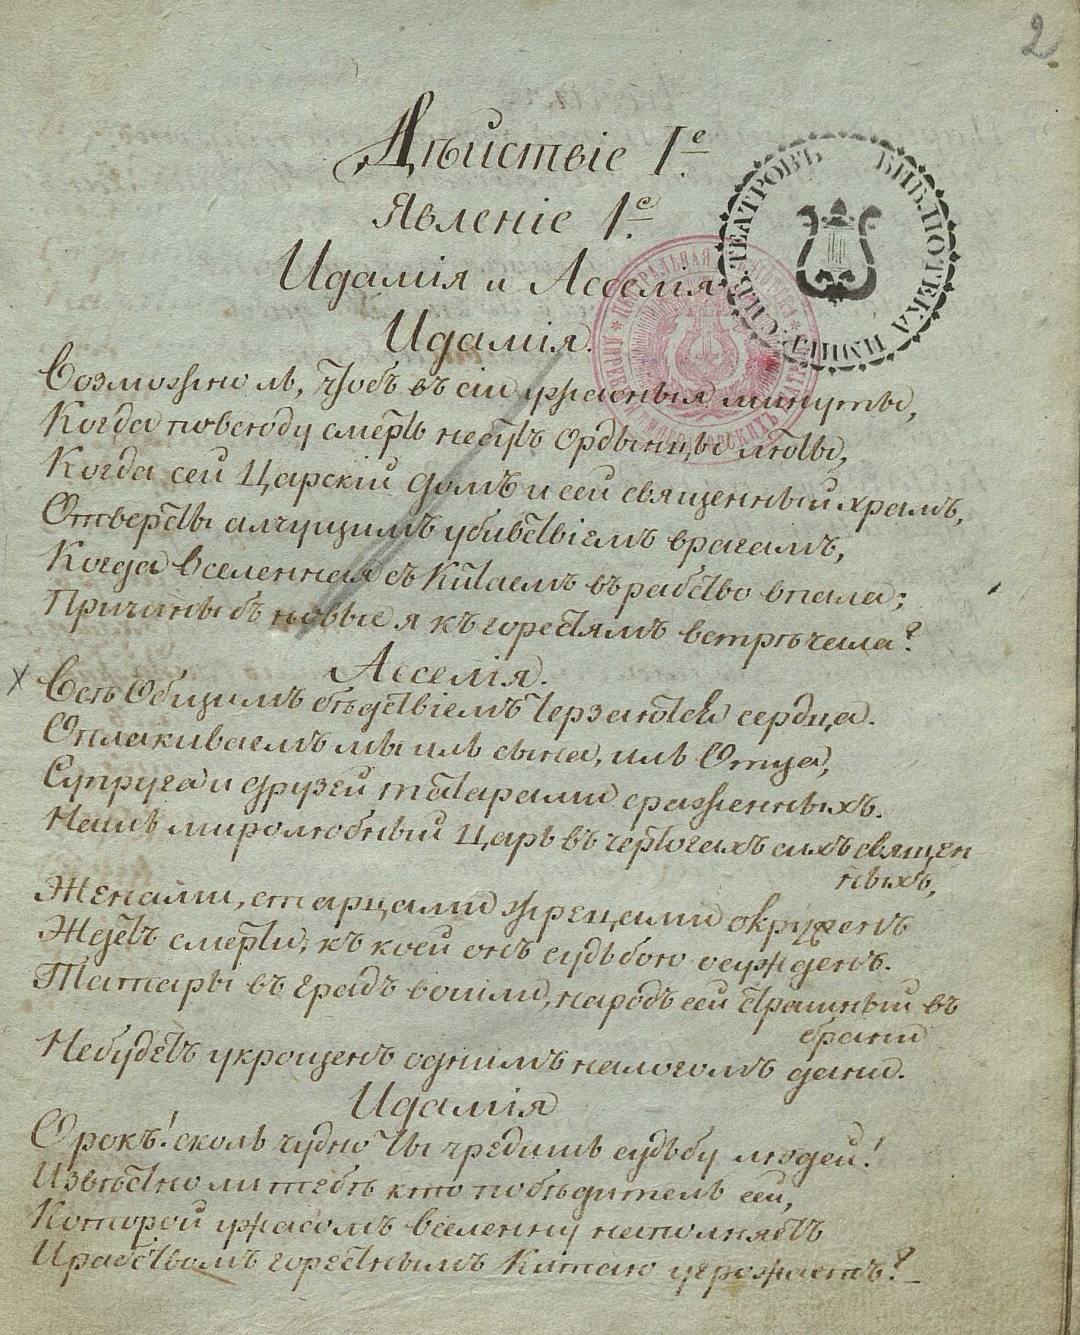 2
Дѣйствіе 1.е
Явленіе 1.е
БИБЛІОТЕКА ИМП. СПБ. ТЕАТРОВЪ
Идамія и Асселія
ЦЕНТРАЛЬНАЯ
Идамія.
Возможно ль, чтобъ въ сіи ужасныя минуты,
Когда повсюду смерть несутъ Ордынцы люты,
Когда сей Царскій домъ и сей священный храмъ,
Отверсты алчущимъ убивствіемъ врагамъ,
Когда вселенная съ Китаемъ въ рабство впала;
Причины бъ новые я къ горестямъ встрѣчала?
Асселія.
Всѣ Общимъ бѣдствіемъ терзаются сердца.
Оплакиваемъ мы иль сына, иль Отца,
Супруга и друзей татарами сраженныхъ.
Нашъ миролюбный Царь въ чертогахъ сихъ священ
ныхъ,
Женами, старцами жрецами окруженъ
Ждетъ смерти, къ коей онъ судьбою осужденъ.
Татары въ градъ вошли, народъ сей страшный въ
брани
Небудетъ укрощенъ однимъ налогомъ дани.
Идамія
О рокъ! сколь чудно ты чредишь судьбу людей!
Извѣстно ли тебѣ кто побѣдитель сей,
Которой ужасомъ вселенну наполняетъ
И рабствомъ горестнымъ Китаю угрожаетъ?